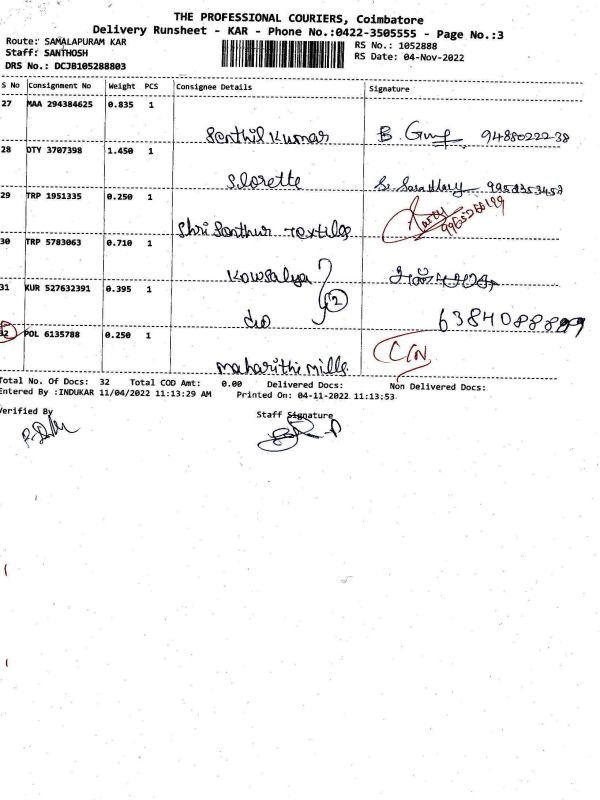 THE PROFESSIONAL COURIERS, Coimbatore
Delivery Runsheet - KAR - Phone No.:0422-3505555 - Page No.:3
Route: SAMALAPURAM KAR
Staff: SANTHOSH
DRS No.: DCJB105288803
RS No.: 1052888
RS Date: 04-Nov-2022
S No Consignment No Weight PCS Consignee Details Signature
27 MAA 294384625 0.835 1
Senthil Kumar 9488022238
28 DTY 3707398 1.450 1
Slorette
29 TRP 1951335 0.250 1
Shri Santhur Textiles
30 TRP 5783063 0.710 1
Kowsalya
2
31 KUR 527632391 0.395 1
do
32 POL 6135788 0.250 1
Maharithi Mills
Total No. Of Docs: 32 Total COD Amt: 0.00 Delivered Docs: Non Delivered Docs:
Entered By :INDUKAR 11/04/2022 11:13:29 AM Printed On: 04-11-2022 11:13:53
Verified By
Staff Signature